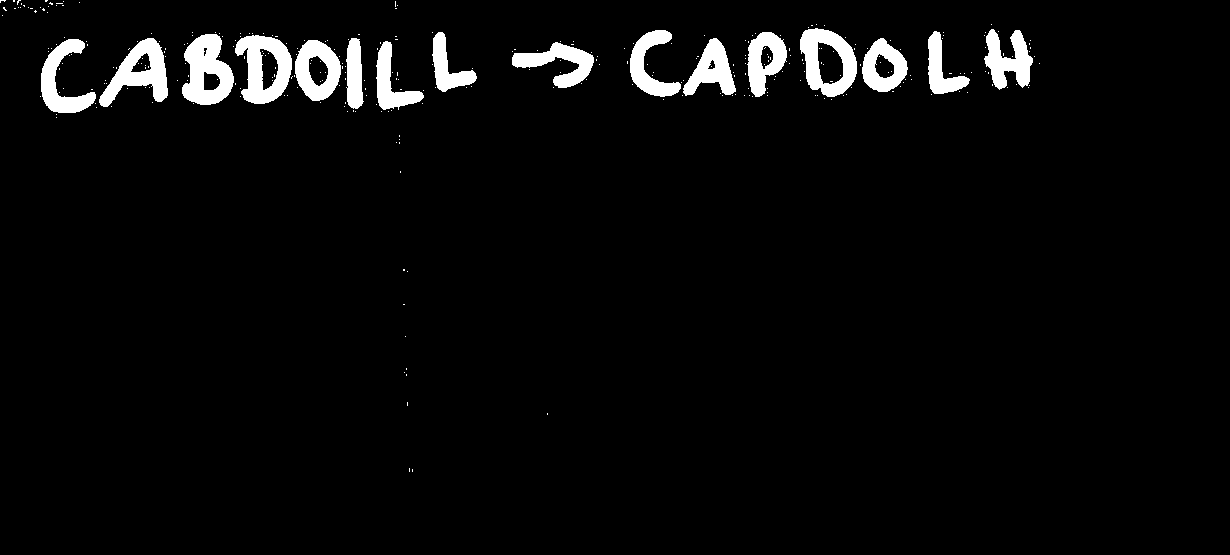 CABDOILL → CAPDOLH